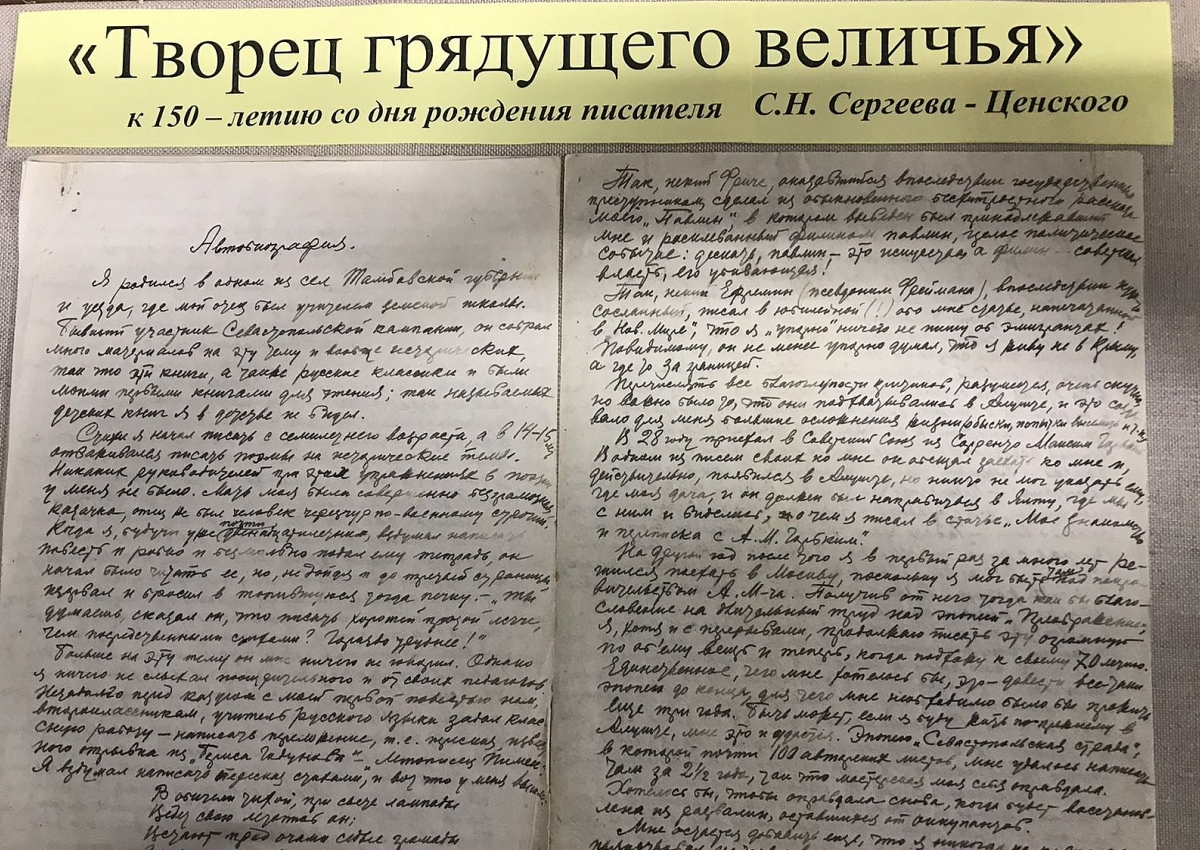 «Творец грядущего величья»
к 150 – летию со дня рождения писателя С.Н. Сергеева - Ценского
Автобиография.
Я родился в одном из сел Тамбовской губернии
и уезда, где мой отец был учителем земской школы.
Бывший участник Севастопольской кампании, он собрал
много материалов на эту тему и вообще исторических,
так что эти книги, а также русские классики и были
моими первыми книгами для чтения; так называемых
детских книг я в детстве не видел.
Стихи я начал писать с семилетнего возраста, а в 14-15 лет
отваживался писать поэмы на исторические темы.
Никаких руководителей при этих упражнениях в поэзии
у меня не было. Мать моя была совершенно безграмотная
казачка, отец же был человек чересчур по-военному строгий.
Когда я, будучи уже почти тринадцатилетним, вздумал написать
повесть и робко и безмолвно подал ему тетрадь, он
начал было читать ее, но, не дойдя и до третьей страницы,
изорвал и бросил в топившуюся тогда печку. – "Ты
думаешь, сказал он, что писать хорошей прозой легче,
чем посредственными стихами? Гораздо труднее!"
Больше на эту тему он мне ничего не говорил. Однако
я ничего не слыхал поощрительного и от своих педагогов.
Незадолго перед казусом с моей первой повестью нам,
второклассникам, учитель русского языка задал клас-
сную работу – написать переложение, т.е. пересказ,
ного отрывка из "Бориса Годунова" – "Летописец Пимен".
Я вздумал написать пересказ стихами, и вот что у меня вышло:
В обители тихой, при свете лампады
Ведет свою летопись он;
Встают пред очами седые громады
Так, некий Фриче, оказавшийся впоследствии государственным
преступником, сделал из обыкновенного бесхитростного рассказа
моего, "Павлин", в котором выведен был принадлежавший
мне и расклеванный филином павлин, целое политическое
событие: дескать, павлин – это искусство, а филин – советская
власть, его убивающая!
Так, некий Ефремин (псевдоним Фреймана), впоследствии
сосланный, писал в юбилейной (!) обо мне статье, напечатанной
в "Нов. Мире", что я "упорно" ничего не пишу об эмигрантах!
Повидимому, он не менее упорно думал, что я живу не в Крыму,
а где то за границей.
Перечислять все благоглупости критиков, разумеется, очень скучно,
но важно было то, что они подхватывались в Алуште, и это созда-
вало для меня большие осложнения
В 28 году приехал в Советский Союз из Сорренто Максим Горький.
В одном из писем своих ко мне он обещал заехать ко мне и,
действительно, появился в Алуште, но никто не мог указать ему,
где моя дача, и он должен был направиться в Ялту, где мы
с ним и виделись, о чем я писал в статье "Мое знакомство
и переписка с А.М. Горьким".
На другой год после того я в первый раз за много лет ре-
шился поехать в Москву, поскольку я мог быть там под покро-
вительством А.М-ча. Получив от него тогда как бы благо-
словение на длительный труд над эпопеей "Преображение",
я, хотя и с перерывами, продолжаю писать эту огромную
по объему вещь и теперь, когда подхожу к своему 70-летию.
Единственное, чего мне хотелось бы, это – довести все-таки
эпопею до конца, для чего мне необходимо было бы прожить
еще три года. Быть может, если я буду жить по-прежнему в
Алуште, мне это и удастся. Эпопею "Севастопольская страда",
в которой почти 100 авторских листов, мне удалось написать
там за 2½ года, так что мастерская моя себя оправдала.
Хотелось бы, чтобы оправдала снова, когда будет восстанов-
лена из развалин, оставшихся от оккупантов.
Мне остается добавить еще, что я никогда не